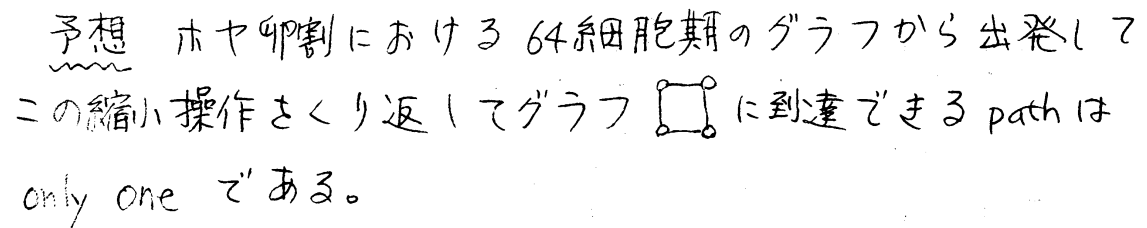 予想 ホヤ卵割における64細胞期のグラフから出発して
この縮小操作をくり返してグラフ に到達できるpathは
only one である。